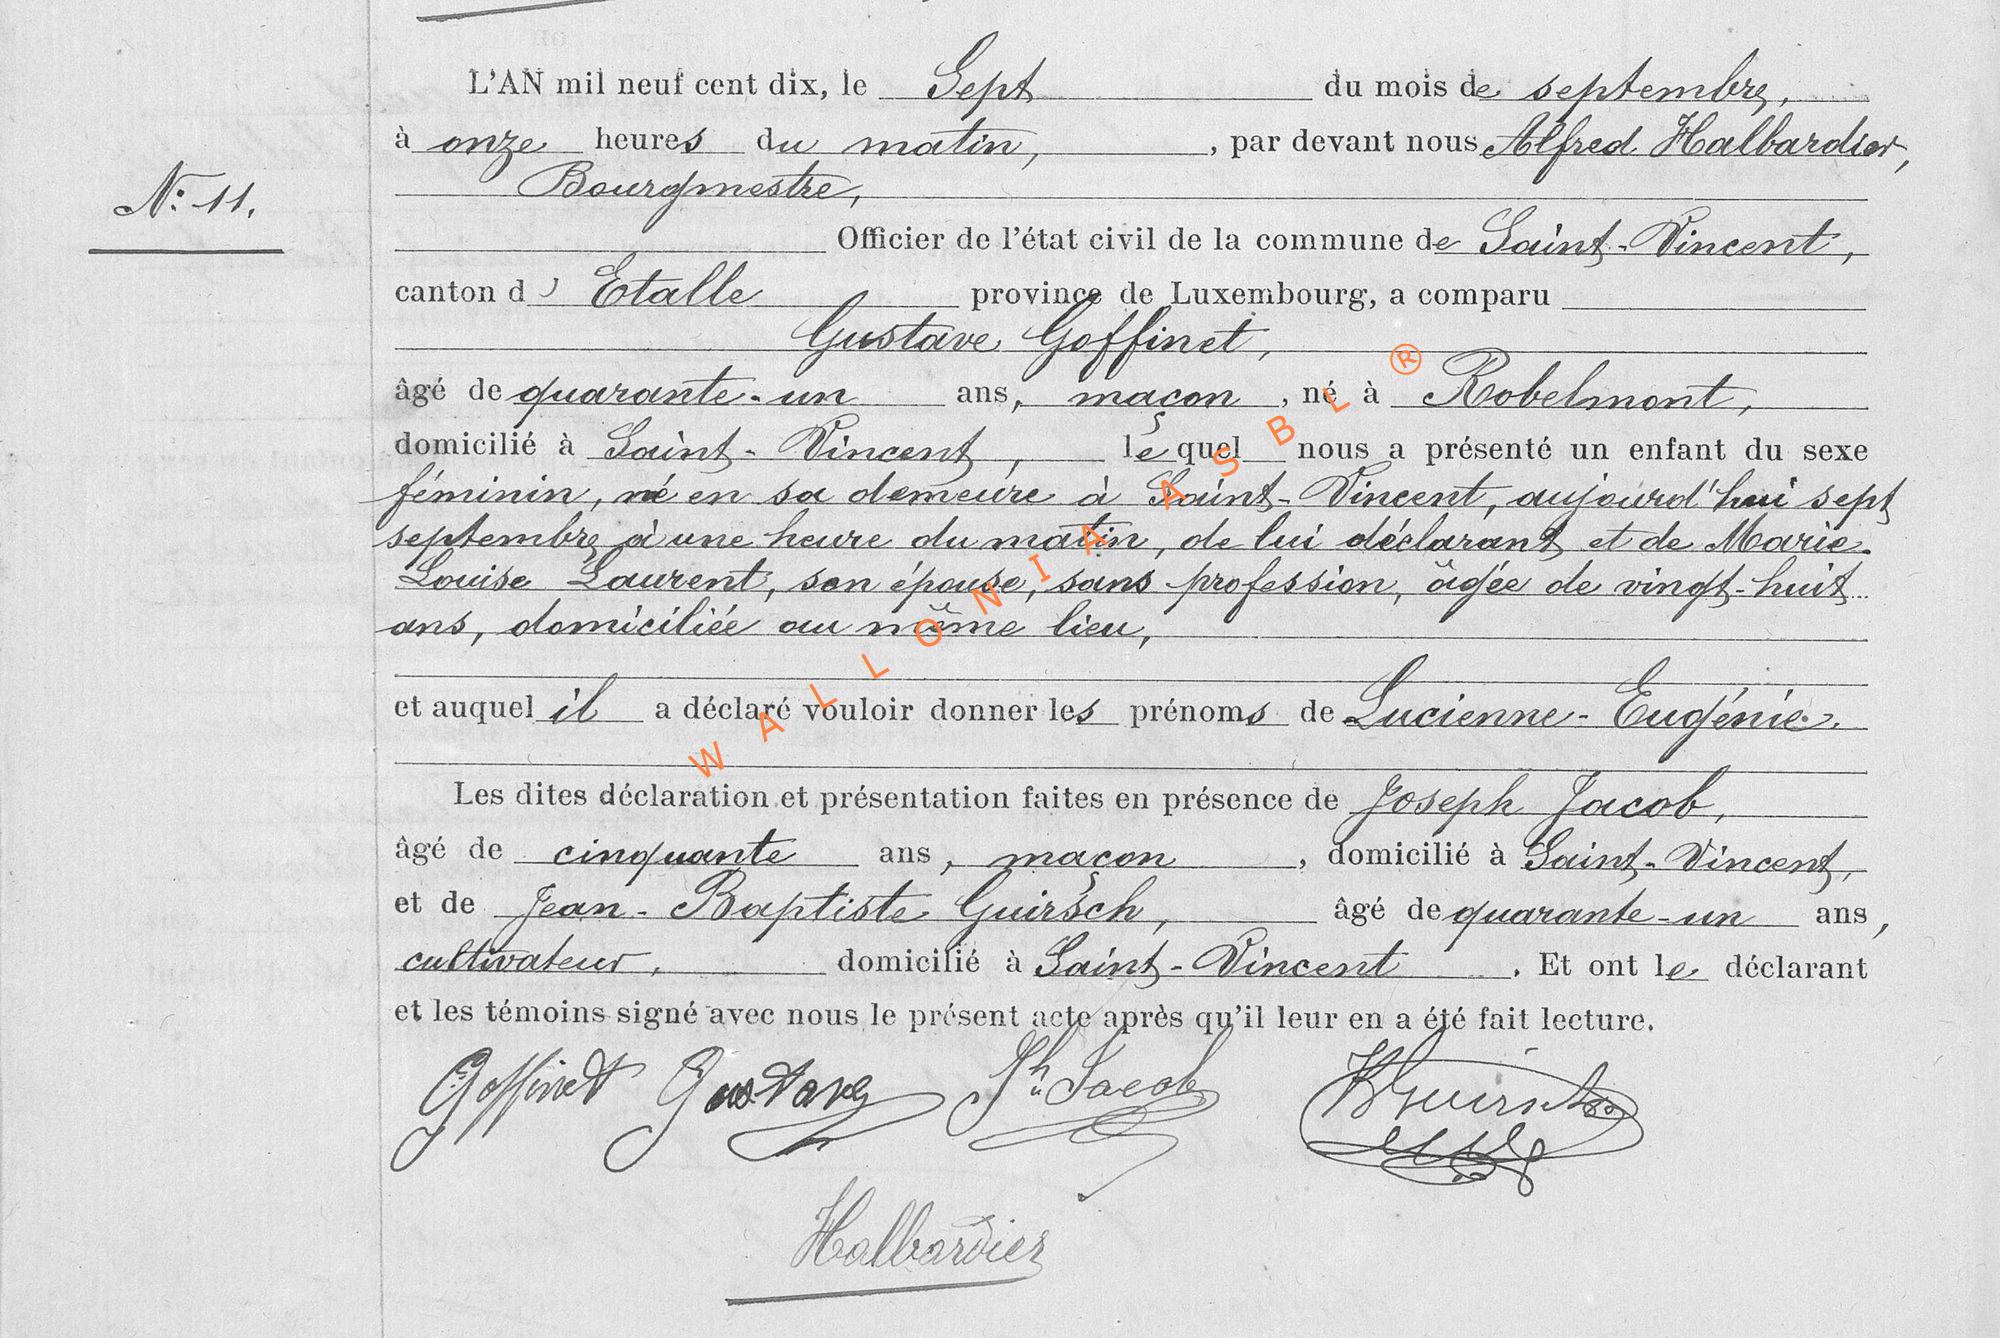 L'AN mil neuf cent dix, le Sept du mois de septembre,
à onze heures du matin, , par devant nous Alfred Halbardier,
Bourgmestre,
N: 11.
Officier de l'état civil de la commune de Saint-Vincent,
canton d' Etalle province de Luxembourg, a comparu
Gustave Goffinet,
âgé de quarante-un ans, maçon , né à Robelmont,
domicilié à Saint-Vincent, lequel nous a présenté un enfant du sexe
féminin, né en sa demeure à Saint-Vincent, aujourd'hui sept
septembre à une heure du matin, de lui déclarant et de Marie-
Louise Laurent, son épouse, sans profession, âgée de vingt-huit
ans, domiciliée au même lieu,
et auquel il a déclaré vouloir donner les prénoms de Lucienne-Eugénie.
Les dites déclaration et présentation faites en présence de Joseph Jacob,
âgé de cinquante ans, maçon , domicilié à Saint-Vincent,
et de Jean-Baptiste Guirsch, âgé de quarante-un ans,
cultivateur, domicilié à Saint-Vincent . Et ont le déclarant
et les témoins signé avec nous le présent acte après qu'il leur en a été fait lecture.
Goffinet Gustave Jh Jacob JBGuirsch
Halbardier
WALLONIA ASBL ®